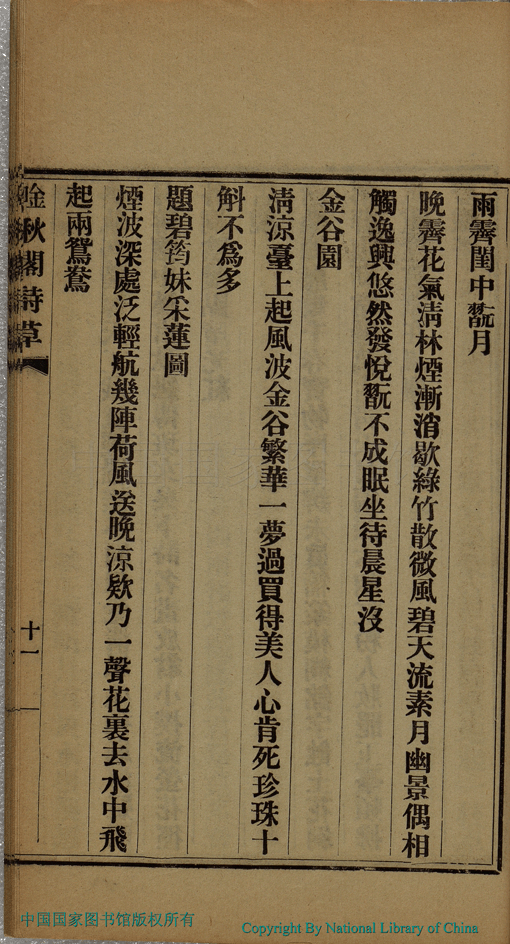 雨霽閨中翫月
晚霽花氣清林煙漸消歇綠竹散微風碧天流素月幽景偶相
觸逸興悠然發悅翫不成眠坐待晨星沒
金谷園
淸涼臺上起風波金谷繁華一夢過買得美人心肯死珍珠十
斛不爲多
題碧筠妹采蓮圖
煙波深處泛輕航幾陣荷風送晚涼欵乃一聲花裏去水中飛
起兩鴛鴦
唫秋閣詩草
十一
中国国家图书馆版权所有
Copyright By National Library of China